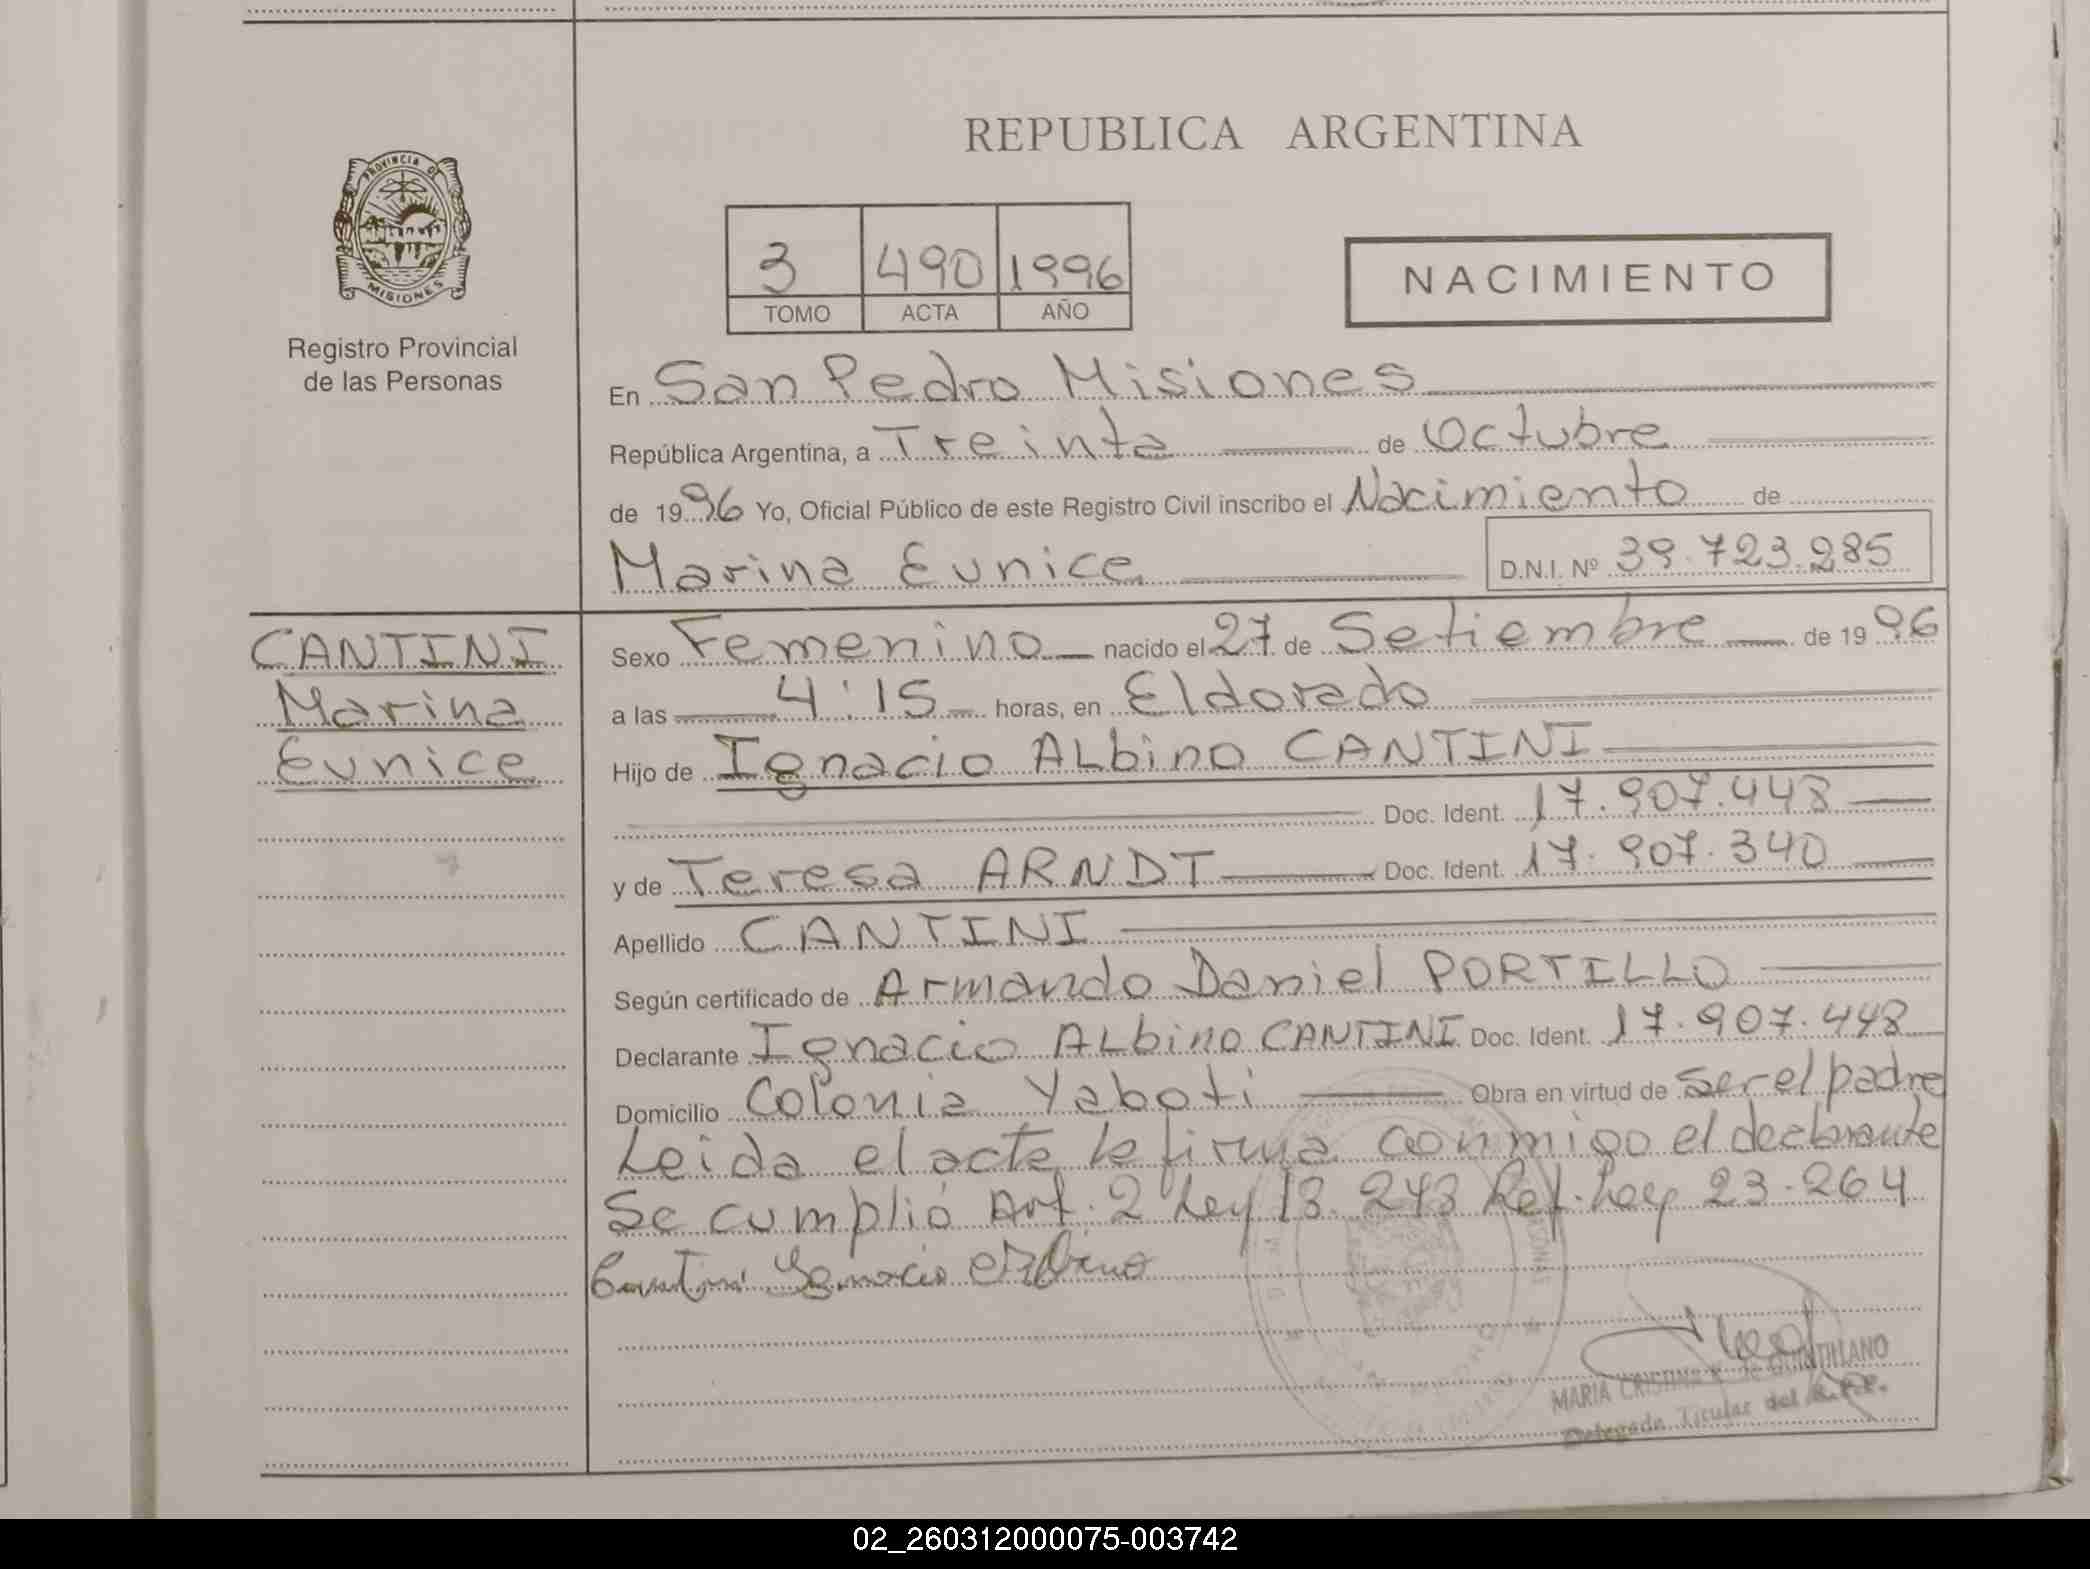 REPUBLICA ARGENTINA
PROVINCIA DE
MISIONES
Registro Provincial
de las Personas
3 490 1996
TOMO ACTA AÑO
NACIMIENTO
En San Pedro Misiones
República Argentina, a Treinta de Octubre
de 1996 Yo, Oficial Público de este Registro Civil inscribo el Nacimiento de
Marina Eunice D.N.I. Nº 39.723.285
CANTINI
Marina
Eunice
Sexo Femenino nacido el 27 de Setiembre de 1996
a las 4:15 horas, en Eldorado
Hijo de Ignacio Albino CANTINI
Doc. Ident. 17.907.448
y de Teresa ARNDT Doc. Ident. 17.907.340
Apellido CANTINI
Según certificado de Armando Daniel PORTILLO
Declarante Ignacio Albino CANTINI Doc. Ident. 17.907.448
Domicilio Colonia Yaboti Obra en virtud de ser el padre
Leida el acta la firma conmigo el declarante
Se cumplió Art. 2 Ley 18.248 Ref. Ley 23.264
Cantini Ignacio Albino
MARIA CRISTINA K. de QUINTILIANO
Delegada Titular del R.P.P.
02_260312000075-003742